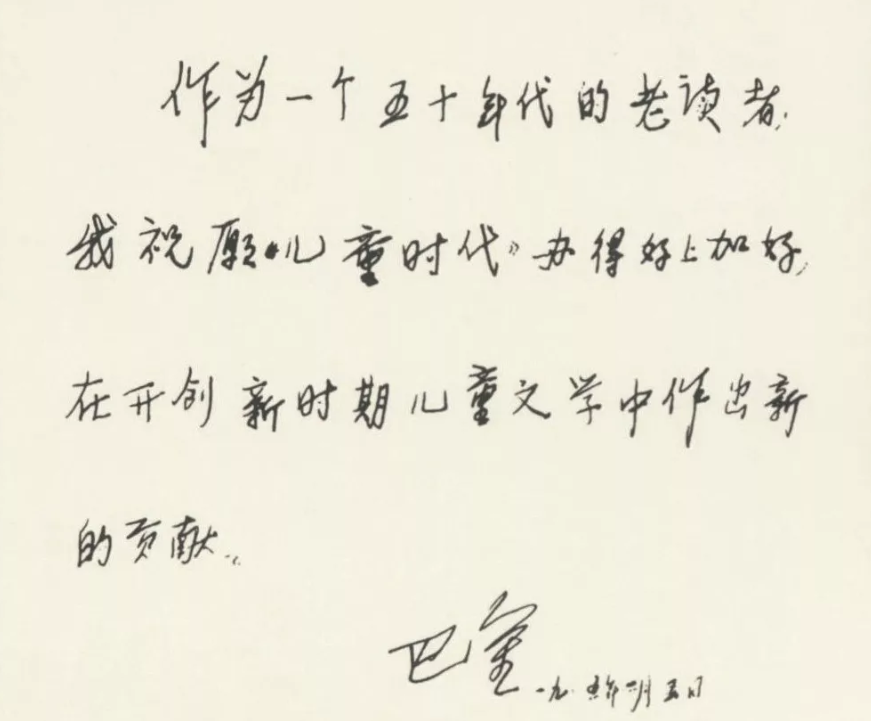 作为一个五十年代的老读者，
我祝愿《儿童时代》办得好上加好，
在开创新时期儿童文学中作出新
的贡献。
巴金 一九 五年 月五日